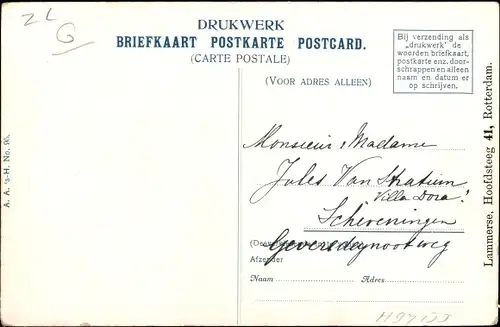 ZL
G
DRUKWERK
BRIEFKAART POSTKARTE POSTCARD.
(CARTE POSTALE)
(VOOR ADRES ALLEEN)
Bij verzending als
„drukwerk" de
woorden briefkaart,
postkarte enz. door-
schrappen en alleen
naam en datum er
op schrijven.
Monsieur, Madame
Jules Van Stratum
Villa Dora!
Scheveningen
Geversdeynootweg
Afzender
Naam
Adres
A. A. 's-H. No. 95.
Lammerse, Hoofdsteeg 41, Rotterdam.